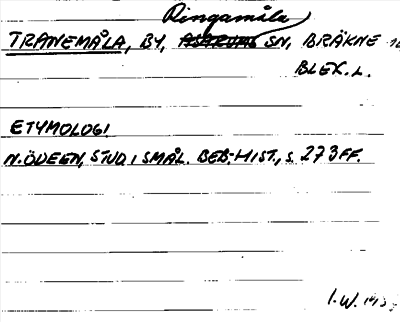 Ringamåla
TRANEMÅLA, BY, ASARUMS SN, BRÄKNE
BLEK. L.
ETYMOLOGI
N. ÖDEEN, STUD I SMÅL. BEB.-HIST., S. 273 FF.
I.W.